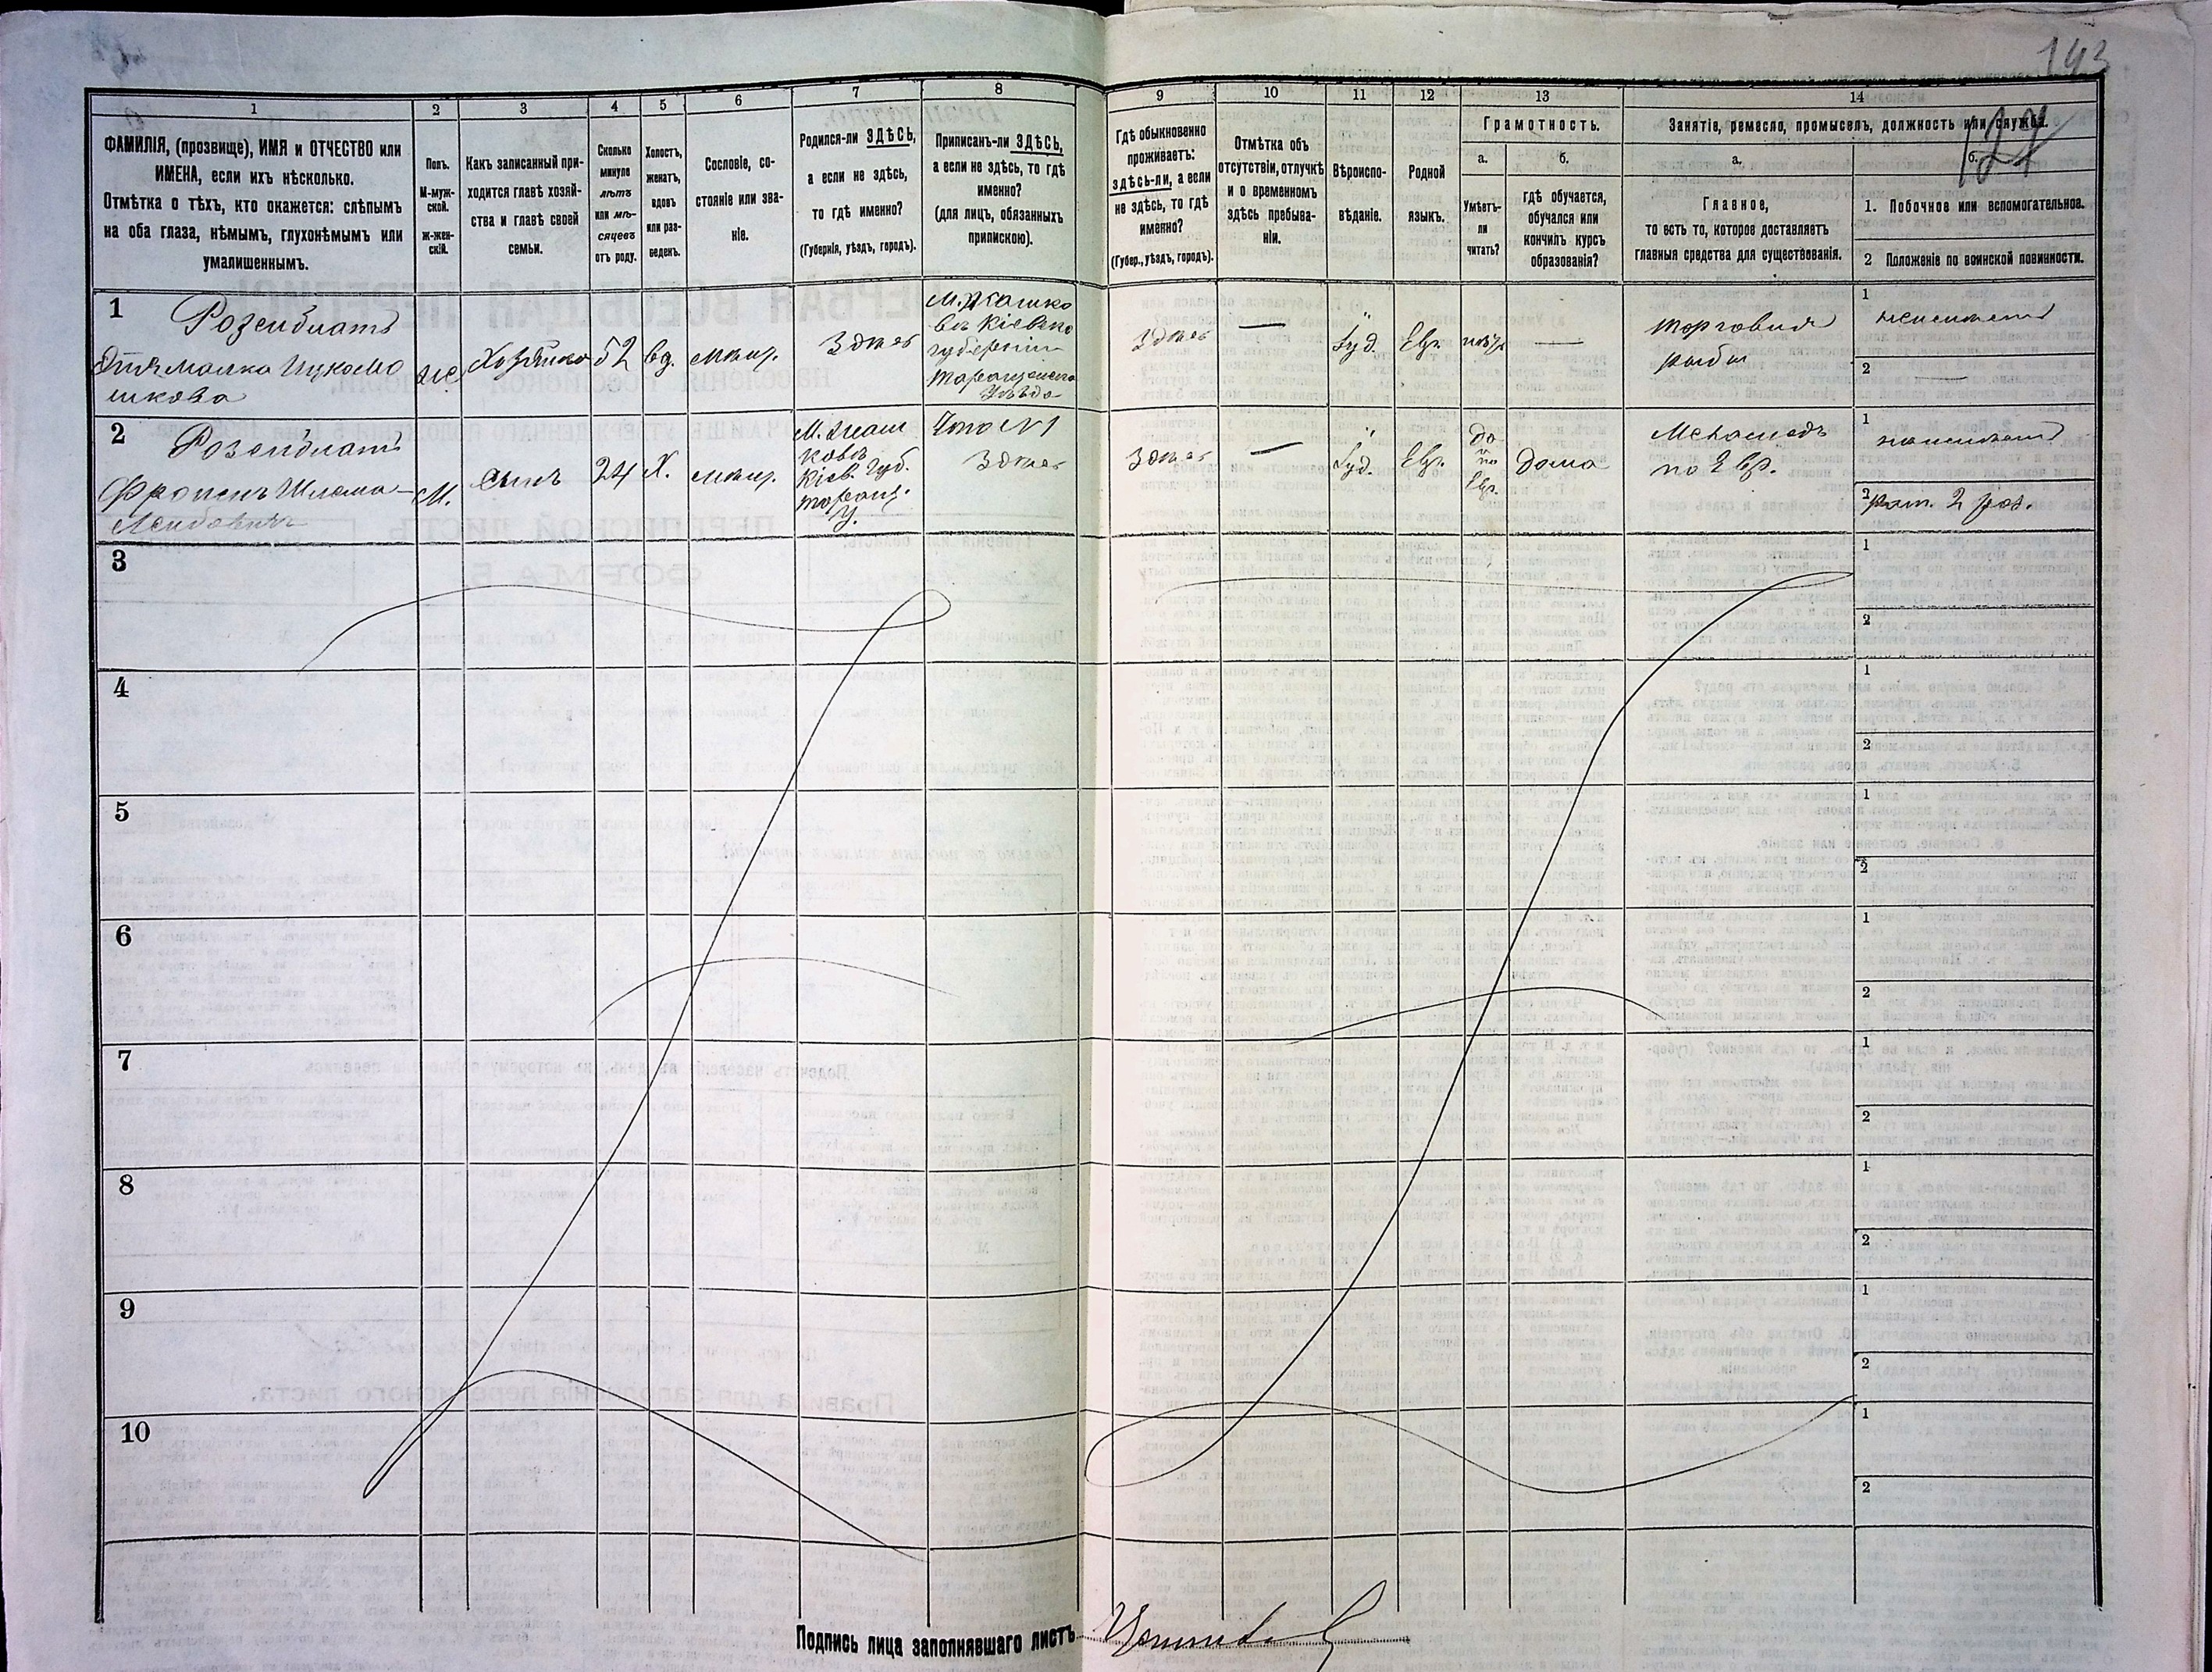 193
1
2
3
4
5
6
7
8
9
10
11
12
13
14
ФАМИЛІЯ, (прозвище), ИМЯ и ОТЧЕСТВО или
ИМЕНА, если ихъ нѣсколько.
Отмѣтка о тѣхъ, кто окажется: слѣпымъ
на оба глаза, нѣмымъ, глухонѣмымъ или
умалишеннымъ.
Полъ.
М-муж-
ской.
Ж-жен-
скій.
Какъ записанный при-
ходится главѣ хозяй-
ства и главѣ своей
семьи.
Сколько
минуло
лѣтъ
или мѣ-
сяцевъ
отъ роду.
Холостъ,
женатъ,
вдовъ
или раз-
веденъ.
Сословіе, со-
стояніе или зва-
ніе.
Родился-ли ЗДѢСЬ,
а если не здѣсь,
то гдѣ именно?
(Губернія, уѣздъ, городъ).
Приписанъ-ли ЗДѢСЬ,
а если не здѣсь, то гдѣ
именно?
(для лицъ, обязанныхъ
припискою).
Гдѣ обыкновенно
проживаетъ:
здѣсь-ли, а если
не здѣсь, то гдѣ
именно?
(Губер., уѣздъ, городъ).
Отмѣтка объ
отсутствіи, отлучкѣ
и о временномъ
здѣсь пребыва-
ніи.
Вѣроиспо-
вѣданіе.
Родной
языкъ.
Грамотность.
а.
б.
Умѣетъ-
ли
читать?
гдѣ обучается,
обучался или
кончилъ курсъ
образованія?
Занятіе, ремесло, промыселъ, должность или служба.
а.
б.
Главное,
то есть то, которое доставляетъ
главныя средства для существованія.
1. Побочное или вспомогательное.
2 Положеніе по воинской повинности.
1
Розенблатъ
Малка Ицкомо
шкова
Хозяйка
52
вд.
мѣщ.
Здѣсь
Кіевско
губерніи
Таращанска
Уѣзда
Здѣсь
—
Іуд.
Евр.
—
торговля
рыбы
1
2
—
2
Розенблатъ
Шлема-
Лейбовичъ
М.
сынъ
24
Х.
мѣщ.
Кіев. Губ.
Таращ.
У.
Здѣсь
Здѣсь
—
Іуд.
Евр.
да
по
Евр.
дома
Меламедъ
по Евр.
1
2
рат. 2 раз.
3
1
2
4
1
2
5
1
2
6
1
2
7
1
2
8
1
2
9
1
2
10
1
2
Подпись лица заполнявшаго листъ